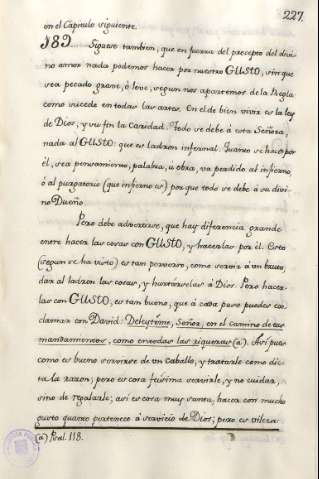 227.
en el Capitulo siguiente.
183. Siguese tambien, que en fuerza del precepto del divi-
no amor nada podemos hacer por nuestro GUSTO, sin que
sea pecado grave, ó leve, segun nos apartemos de la Regla
como sucede en todas las artes. En el de bien vivir es la ley
de Dios, y su fin la Caridad. Todo se debe á esta Señora,
nada al GUSTO: que es ladron infernal. Quanto se hace por
él, sea pensamiento, palabra, ú obra, va perdido al infierno,
ó al purgatorio (que infierno es) por que todo se debe á su divi-
no Dueño.
Pero debe advertirse, que hay diferencia grande
entre hacer las cosas con GUSTO, y hacerlas por él. Esto
(segun se ha visto) es tan perverso, como seria á un
dar al ladron las cosas, y hurtarselas á Dios. Pero hacer-
las con GUSTO, es tan bueno, que á cada paso puedes ex-
clamar con David: Deleytéme, Señor, en el camino de tus
mandamientos, como en todas las riquezas (a). Asi pues
como es bueno servirse de un caballo, y tratarle como dic-
ta la razon; pero es cosa feisima servirle, y no cuidar,
sino de regalarle; asi es cosa muy santa, hacer con mucho
gusto quanto pertenece á servicio de Dios; pero es vileza
(a) Psal. 118.